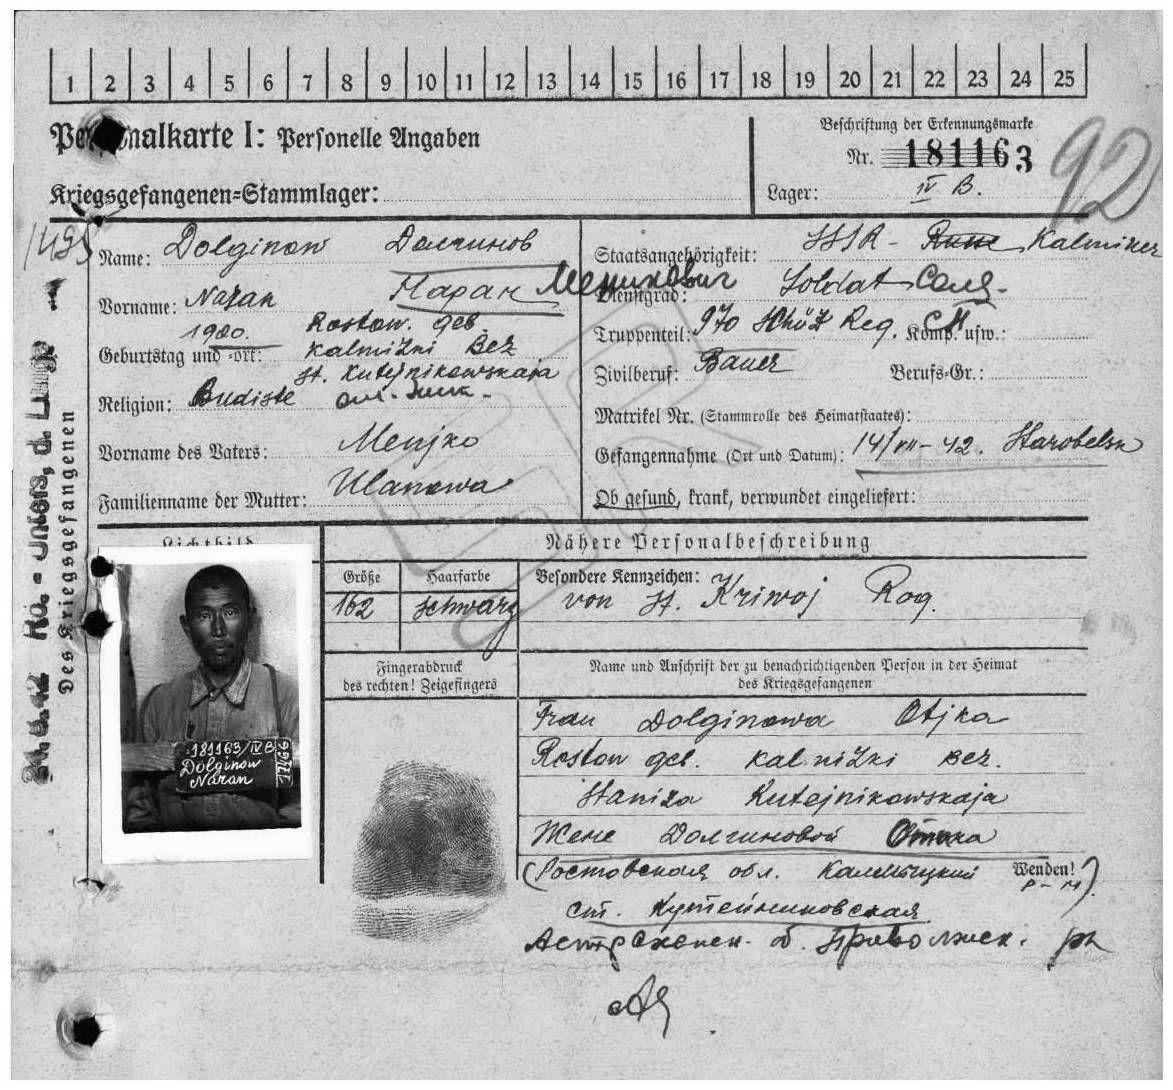 1 2 3 4 5 6 7 8 9 10 11 12 13 14 15 16 17 18 19 20 21 22 23 24 25
Personalkarte I: Personelle Angaben
Kriegsgefangenen-Stammlager:
Beschriftung der Erkennungsmarke
Nr. 181163
Lager: IV B.
92
Name: Dolginow Долгинов
Vorname: Naran Наран Меникович
1900.
Geburtstag und -ort: Rostow. geb.
Kalmizki Bez
st. Kutejnikowskaja
Religion: Budiste
Vorname des Vaters: Menjko
Familienname der Mutter: Ulanowa
Staatsangehörigkeit: SSSR - Russe Kalmiken
Dienstgrad: Soldat
Truppenteil: 970 Schütz Reg. Komp. usw.:
Zivilberuf: Bauer Berufs-Gr.:
Matrikel Nr. (Stammrolle des Heimatstaates):
Gefangennahme (Ort und Datum): 14/VII-42. Starobelsk
Ob gesund, krank, verwundet eingeliefert:
Des Kriegsgefangenen
Lichtbild
Nähere Personalbeschreibung
Größe Haarfarbe Besondere Kennzeichen:
162 schwarz von st. Kriwoj Rog.
Fingerabdruck
des rechten! Zeigefingers
Name und Anschrift der zu benachrichtigenden Person in der Heimat
des Kriegsgefangenen
Frau Dolginowa Otjka
Rostow geb. Kalmizki Bez.
Staniza Kutejnikowskaja
Жене Долгиновой
(Ростовская обл. Калмыцкий Р-н)
Wenden!
ст. Кутейниковская
181163/IV B
Dolginow
Naran